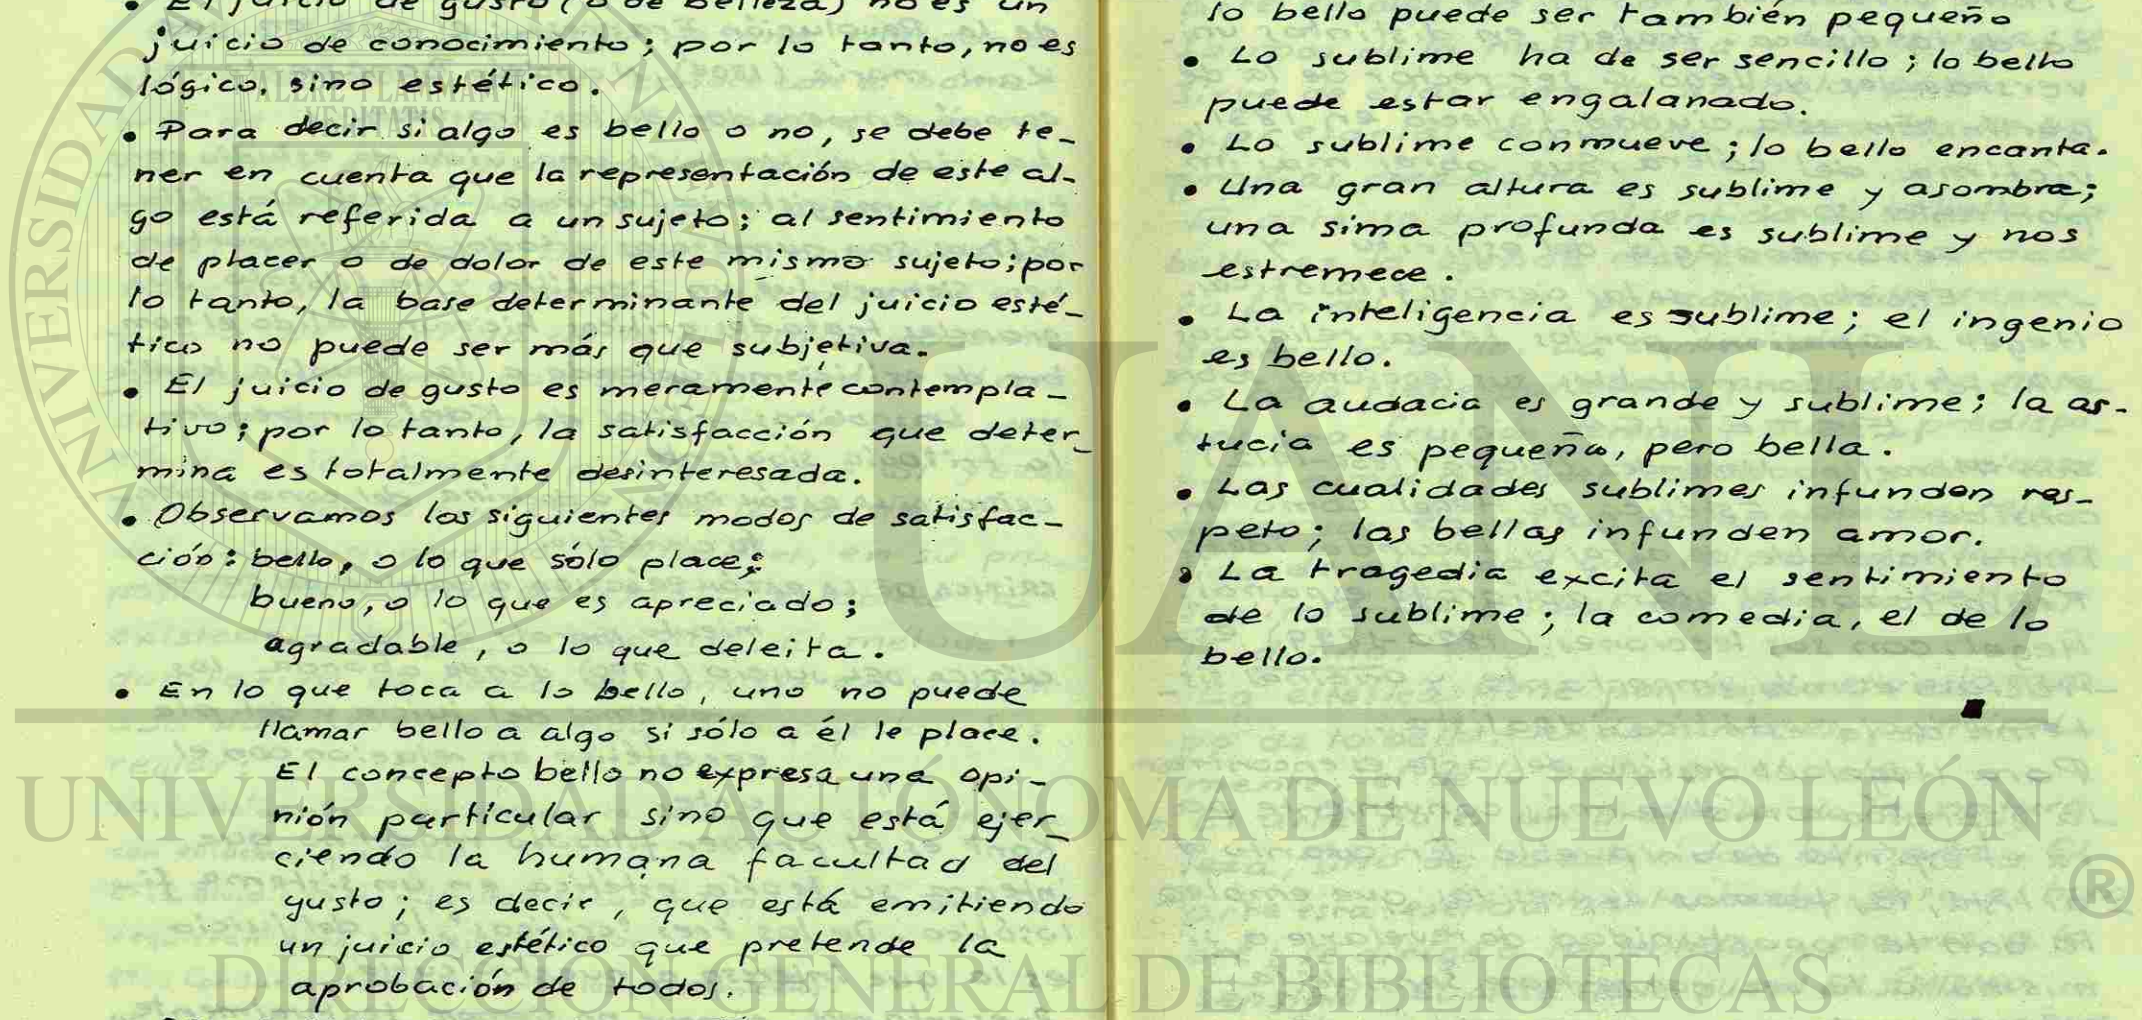 • El juicio de gusto (o de belleza) no es un
juicio de conocimiento; por lo tanto, no es
lógico, sino estético.
• Para decir si algo es bello o no, se debe te-
ner en cuenta que la representación de este al-
go está referida a un sujeto; al sentimiento
de placer o de dolor de este mismo sujeto; por
lo tanto, la base determinante del juicio esté-
tico no puede ser más que subjetiva.
• El juicio de gusto es meramente contempla-
tivo; por lo tanto, la satisfacción que deter-
mina es totalmente desinteresada.
• Observamos los siguientes modos de satisfac-
ción: bello, o lo que sólo place;
bueno, o lo que es apreciado;
agradable, o lo que deleita.
• En lo que toca a lo bello, uno no puede
llamar bello a algo si sólo a él le place.
El concepto bello no expresa una opi-
nión particular sino que está ejer-
ciendo la humana facultad del
gusto; es decir, que está emitiendo
un juicio estético que pretende la
aprobación de todos.
lo bello puede ser también pequeño
• Lo sublime ha de ser sencillo; lo bello
puede estar engalanado.
• Lo sublime conmueve; lo bello encanta.
• Una gran altura es sublime y asombra;
una sima profunda es sublime y nos
estremece.
• La inteligencia es sublime; el ingenio
es bello.
• La audacia es grande y sublime; la as-
tucia es pequeña, pero bella.
• Las cualidades sublimes infunden res-
peto; las bellas infunden amor.
• La tragedia excita el sentimiento
de lo sublime; la comedia, el de lo
bello.
UANL
UNIVERSIDAD AUTÓNOMA DE NUEVO LEÓN
®
DIRECCIÓN GENERAL DE BIBLIOTECAS
ALERE FLAMMAM
VERITATIS